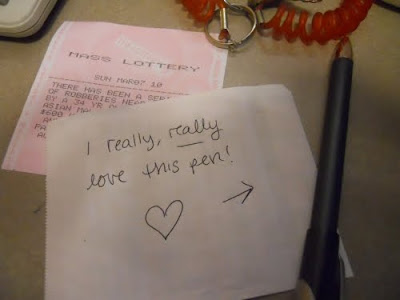 MASS LOTTERY
SUN MAR07 10
THERE HAS BEEN A
OF ROBBERIES
BY A 34 YR
ASIAN
$600
I really, really
love this pen!